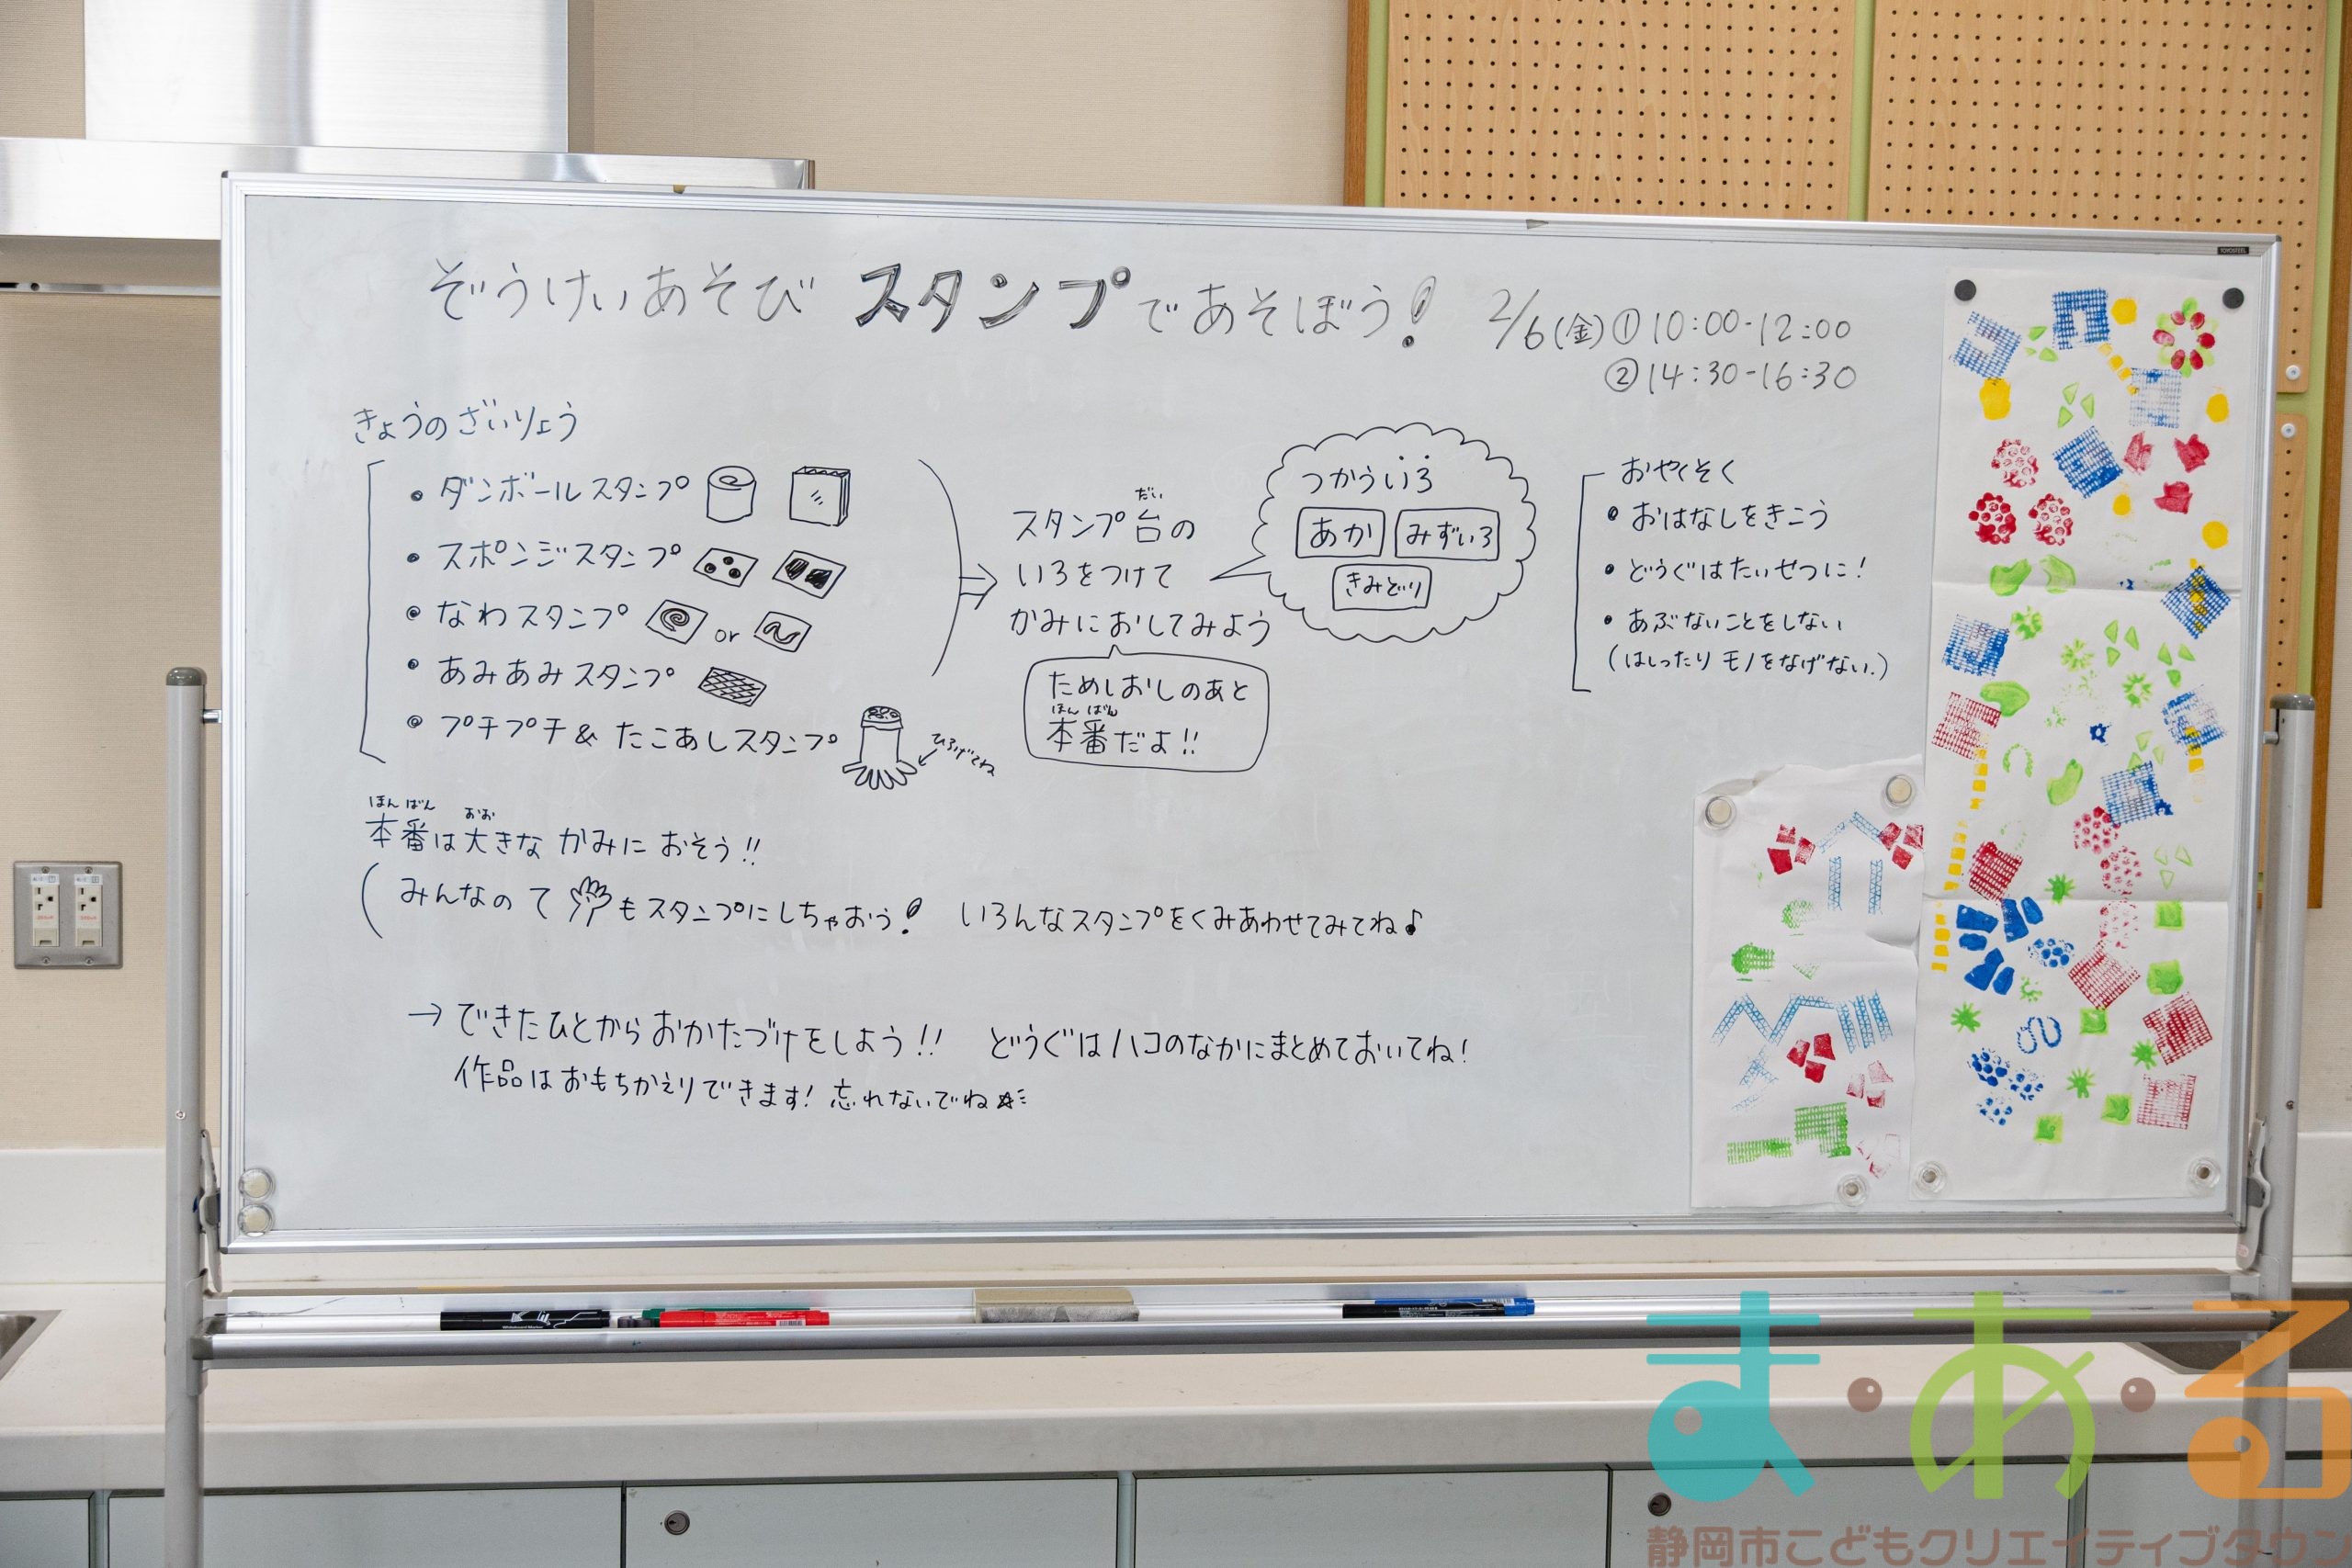 ぞうけいあそび スタンプであそぼう! 2/6(金)①10:00-12:00
②14:30-16:30
きょうのざいりょう
・ダンボールスタンプ
・スポンジスタンプ
・なわスタンプ or
・あみあみスタンプ
・プチプチ&たこあしスタンプ
ひろげてね
だい
スタンプ台の
いろをつけて
かみにおしてみよう
ためしおしのあと
ほんばん
本番だよ!!
つかういろ
あか みずいろ
きみどり
おやくそく
・おはなしをきこう
・どうぐはたいせつに!
・あぶないことをしない
(はしったりモノをなげない。)
ほんばん おお
本番は大きな かみに おそう!!
(みんなのて もスタンプにしちゃおう! いろんなスタンプをくみあわせてみてね♪
→できたひとからおかたづけをしよう!! どうぐはハコのなかにまとめておいてね!
作品はおもちかえりできます! 忘れないでね☆
ま・あ・る
静岡市こどもクリエイティブタウン